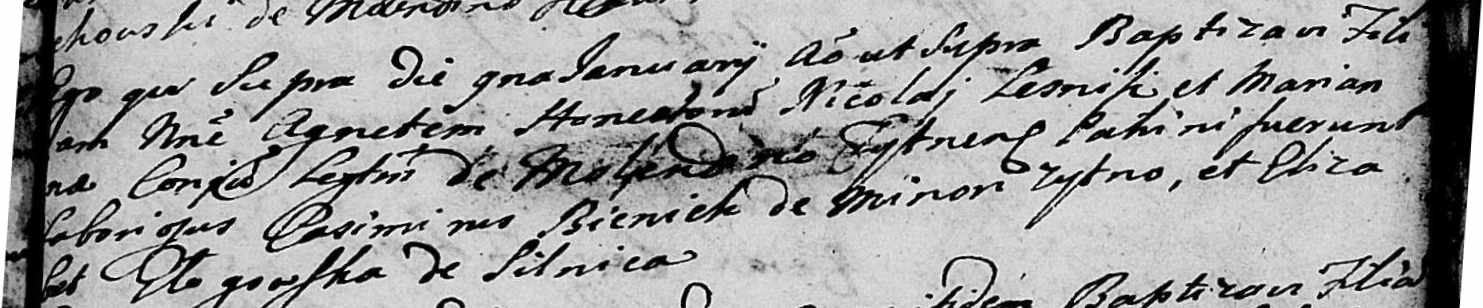 chowski de
Ego qui Supra die 9na Januarij Aõ ut Supra Baptizavi Fili
am Nnẽ Agnetem Honestorũ Nicolaj Lesnik et Marian
næ Conjũ Legtm̃ de Molendino Zytnens Patrini fuerunt
laboriosus Casimirus Bieniek de Minori Zytno, et Eliza
bet Glogowska de Silnica
Baptizavi Filia